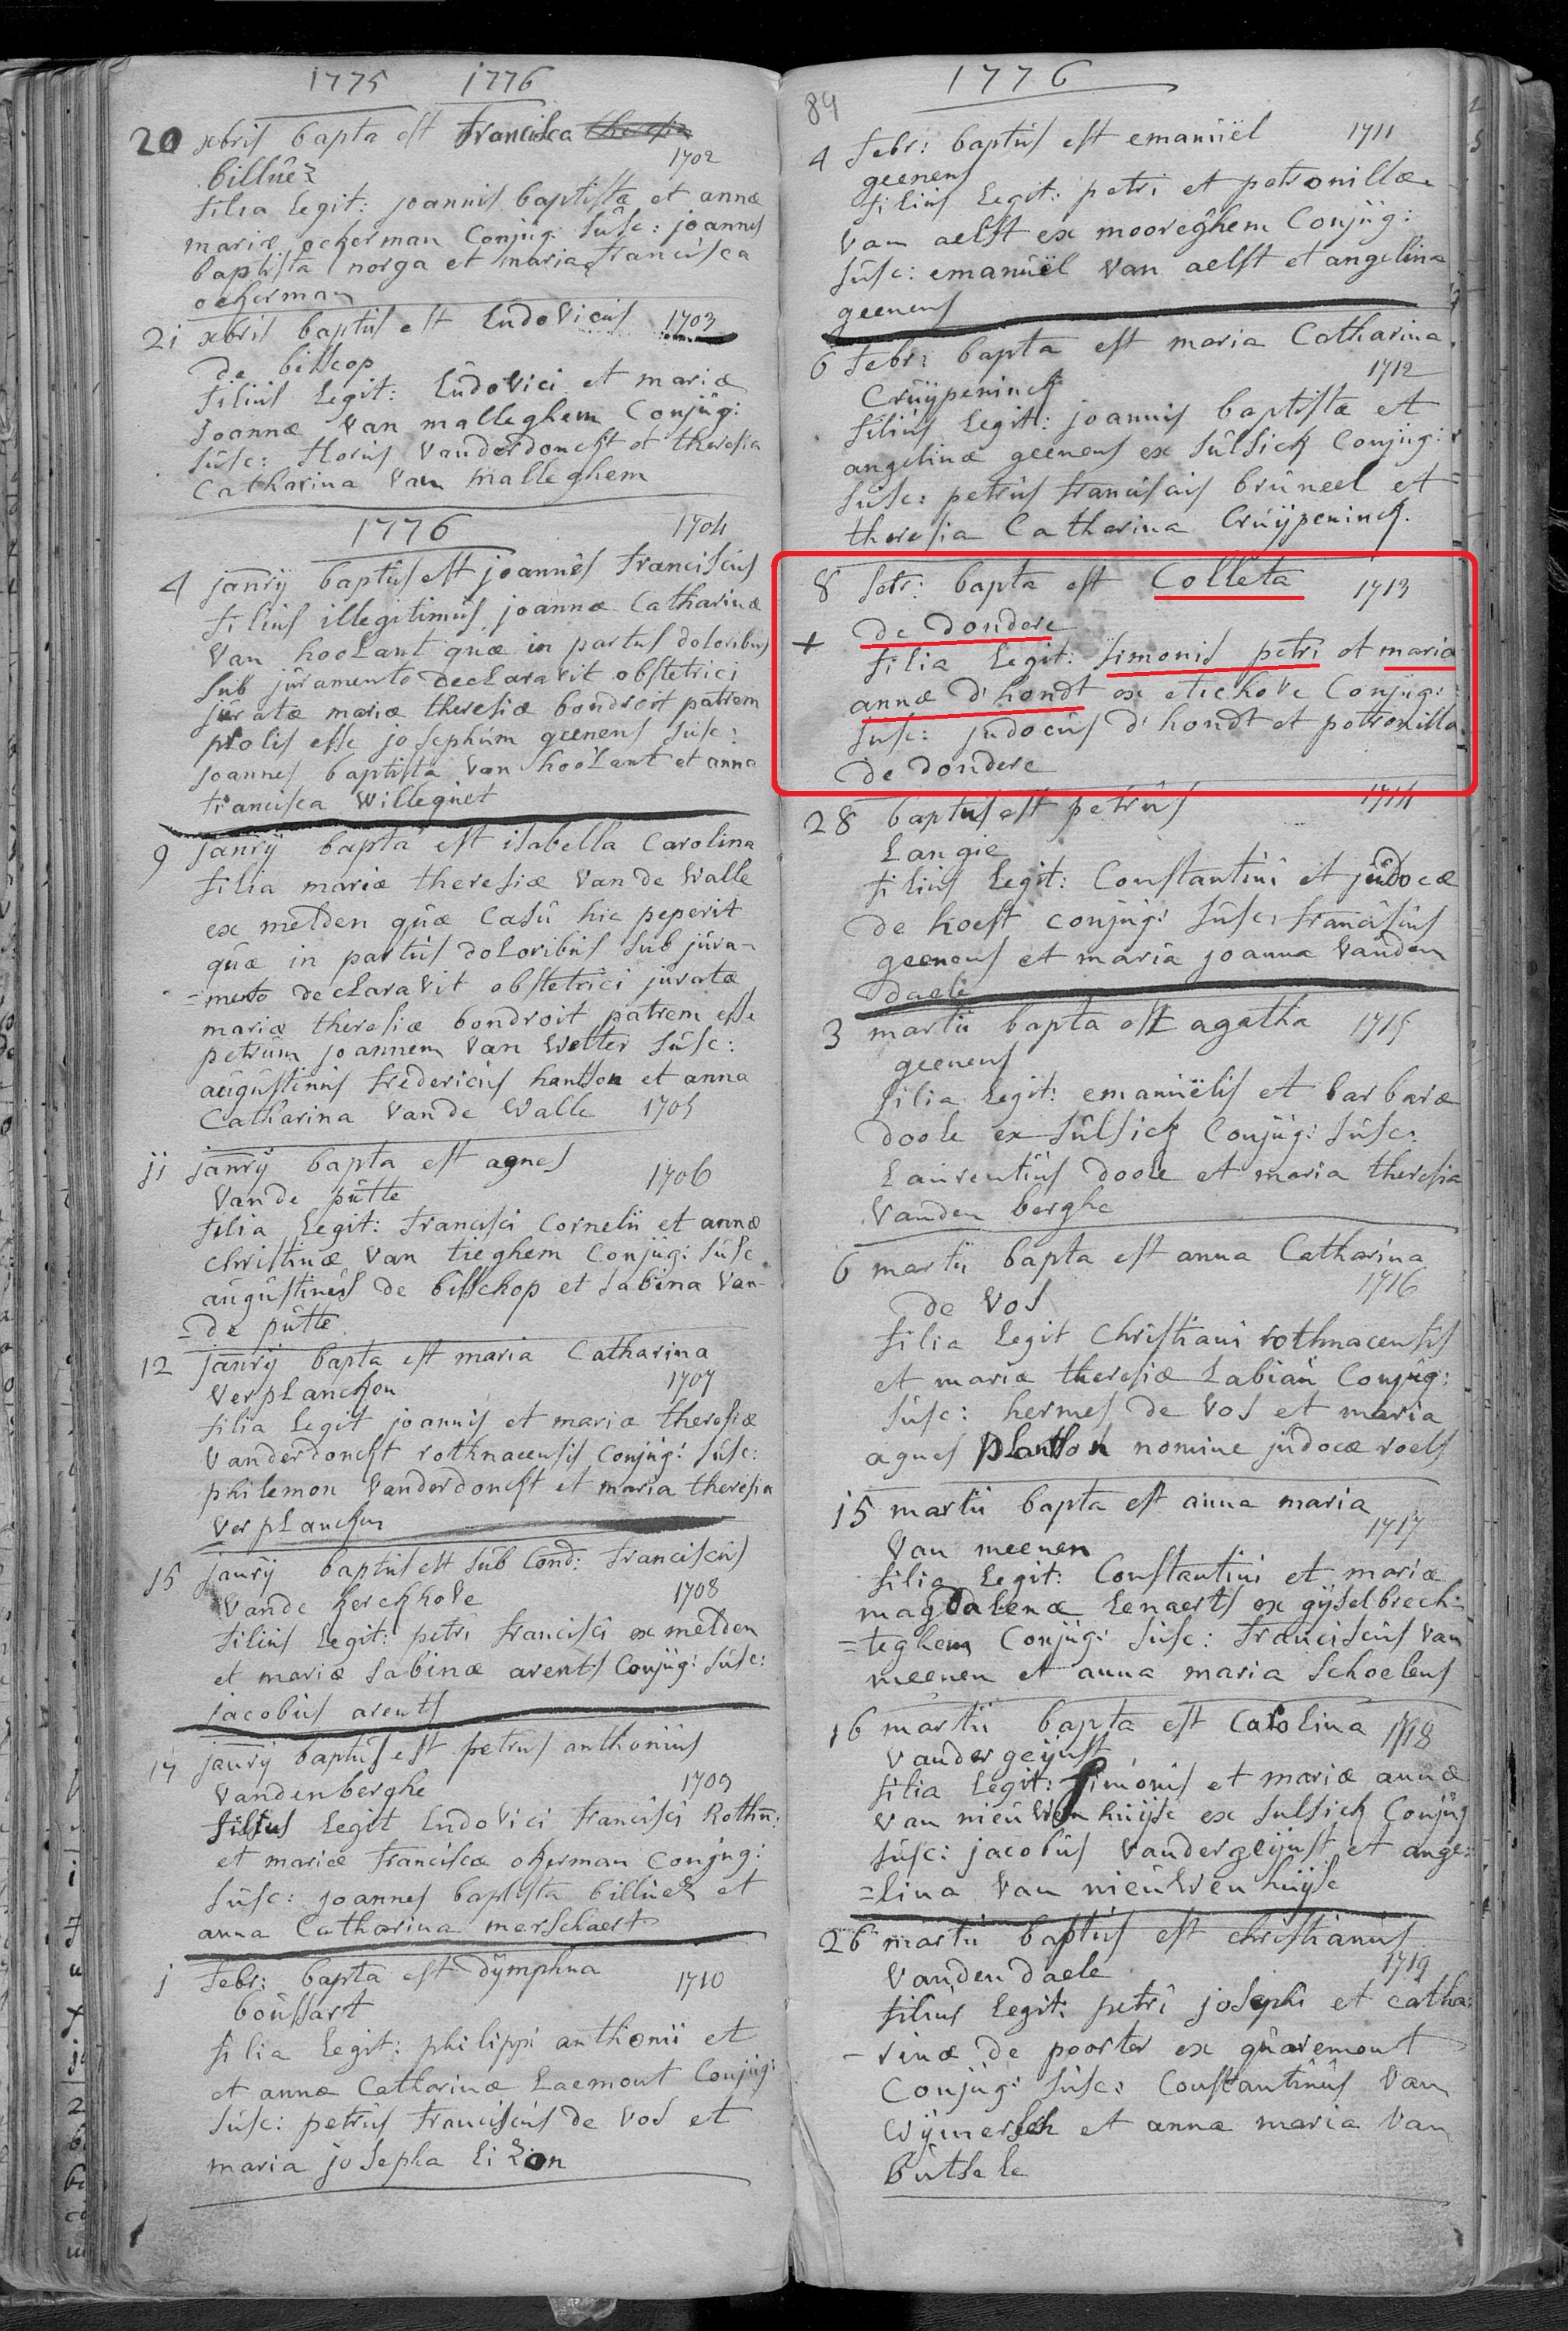 1775 1776
20 xbris bapta est Francisca theresia
billüez 1702
filia legit: joannis baptistæ et annæ
mariæ ockerman conjüg: süsc: joannes
baptista norga et maria francisca
ockerman
21 xbris baptüs est Lüdovicüs 1703
de bisscop
filiüs legit: Lüdovici et mariæ
joannæ van malleghem conjüg:
süsc: florüs vanderdonckt et theresia
catharina van malleghem
1776 1704
4 janrij baptüs est joannes franciscüs
filiüs illegitimüs joannæ catharinæ
van hoolant qüæ in partus doloribüs
sub jüramento declaravit obstetrici
jüratæ mariæ theresiæ bondroit patrem
prolis esse josephüm geenens süsc:
joannes baptista van hoolant et anna
francisca willeqüet
9 janrij bapta est isabella carolina
filia mariæ theresiæ van de walle
ex melden qüæ casü hic peperit
qüæ in partüs doloribüs sub jüra-
=mento declaravit obstetrici jüratæ
mariæ theresiæ bondroit patrem esse
petrüm joannem van wetter süsc:
aügüstinüs fredericüs hantson et anna
catharina van de walle 1705
11 janrij bapta est agnes
van de pütte 1706
filia legit: francisci cornelii et annæ
christinæ van tieghem conjüg: süsc
aügüstinüs de bisschop et sabina van-
=de pütte
12 janrij bapta est maria catharina
verplancken 1707
filia legit joannis et mariæ theresiæ
vanderdonckt rothnacensis conjüg: süsc:
philemon vanderdonckt et maria theresia
verplancken
15 janrij baptüs est süb cond: franciscüs
van de kerckhove 1708
filiüs legit: petri francisci ex melden
et mariæ sabinæ arents conjüg: süsc:
jacobüs arents
17 janrij baptüs est petrus anthoniüs
vandenberghe 1709
filius legit Lüdovici francisci Rothn:
et mariæ franciscæ okerman conjug:
süsc: joannes baptista billüez et
anna catharina merschaert
1 febr: bapta est dÿmphna 1710
boüssart
filia legit: philippi anthonii et
et annæ catharinæ Laemont conjüg:
süsc: petrüs franciscüs de vos et
maria josepha Lizon
84 1776
4 febr: baptüs est emanüël 1711
geenens
filiüs legit: petri et petronillæ
van aelst ex mooreghem conjüg:
süsc: emanüël van aelst et angelina
geenens
6 febr: bapta est maria catharina
crüijpeninck 1712
filiüs legit: joannis baptistæ et
angelinæ geenens ex sülsick conjüg:
süsc: petrüs franciscüs brüneel et
theresia catharina crüijpeninck.
8 febr: bapta est Colleta 1713
+ de dondere
filia legit: simonis petri et mariæ
annæ d'hondt ex etichove conjüg:
süsc: jüdocüs d'hondt et petronilla
de dondere
28 baptüs est petrüs 1714
Langie
filiüs legit: constantini et jüdocæ
de hoest conjüg: süsc: franciscüs
geenens et maria joanna vanden
daele
3 martii bapta est agatha 1715
geenens
filia legit: emanüëlis et barbaræ
doole ex sülsick conjüg: süsc:
Laürentiüs doole et maria theresia
vanden berghe
6 martii bapta est anna catharina
de vos 1716
filia legit christiani rothnacensis
et mariæ theresiæ Labiaü conjüg:
süsc: hermes de vos et maria
agnes planson nomine jüdocæ roels
15 martii bapta est anna maria
van meenen 1717
filia legit: constantini et mariæ
magdalenæ Lenaerts ex gijselbrech-
=teghem conjüg: süsc: franciscüs van
meenen et anna maria schoelens
16 martii bapta est carolina 1718
vandergeijnst
filia legit: simonis et mariæ annæ
van nieüwenhüijse ex sulsick conjüg
süsc: jacobüs vandergeijnst et ange:
=lina van nieüwenhüijse
26 martii baptüs est christianüs
vanden daele 1719
filiüs legit: petri josephi et catha:
-rinæ de poorter ex qüaremont
conjüg: süsc: constantinüs van
wijmersch et anna maria van
bütsele